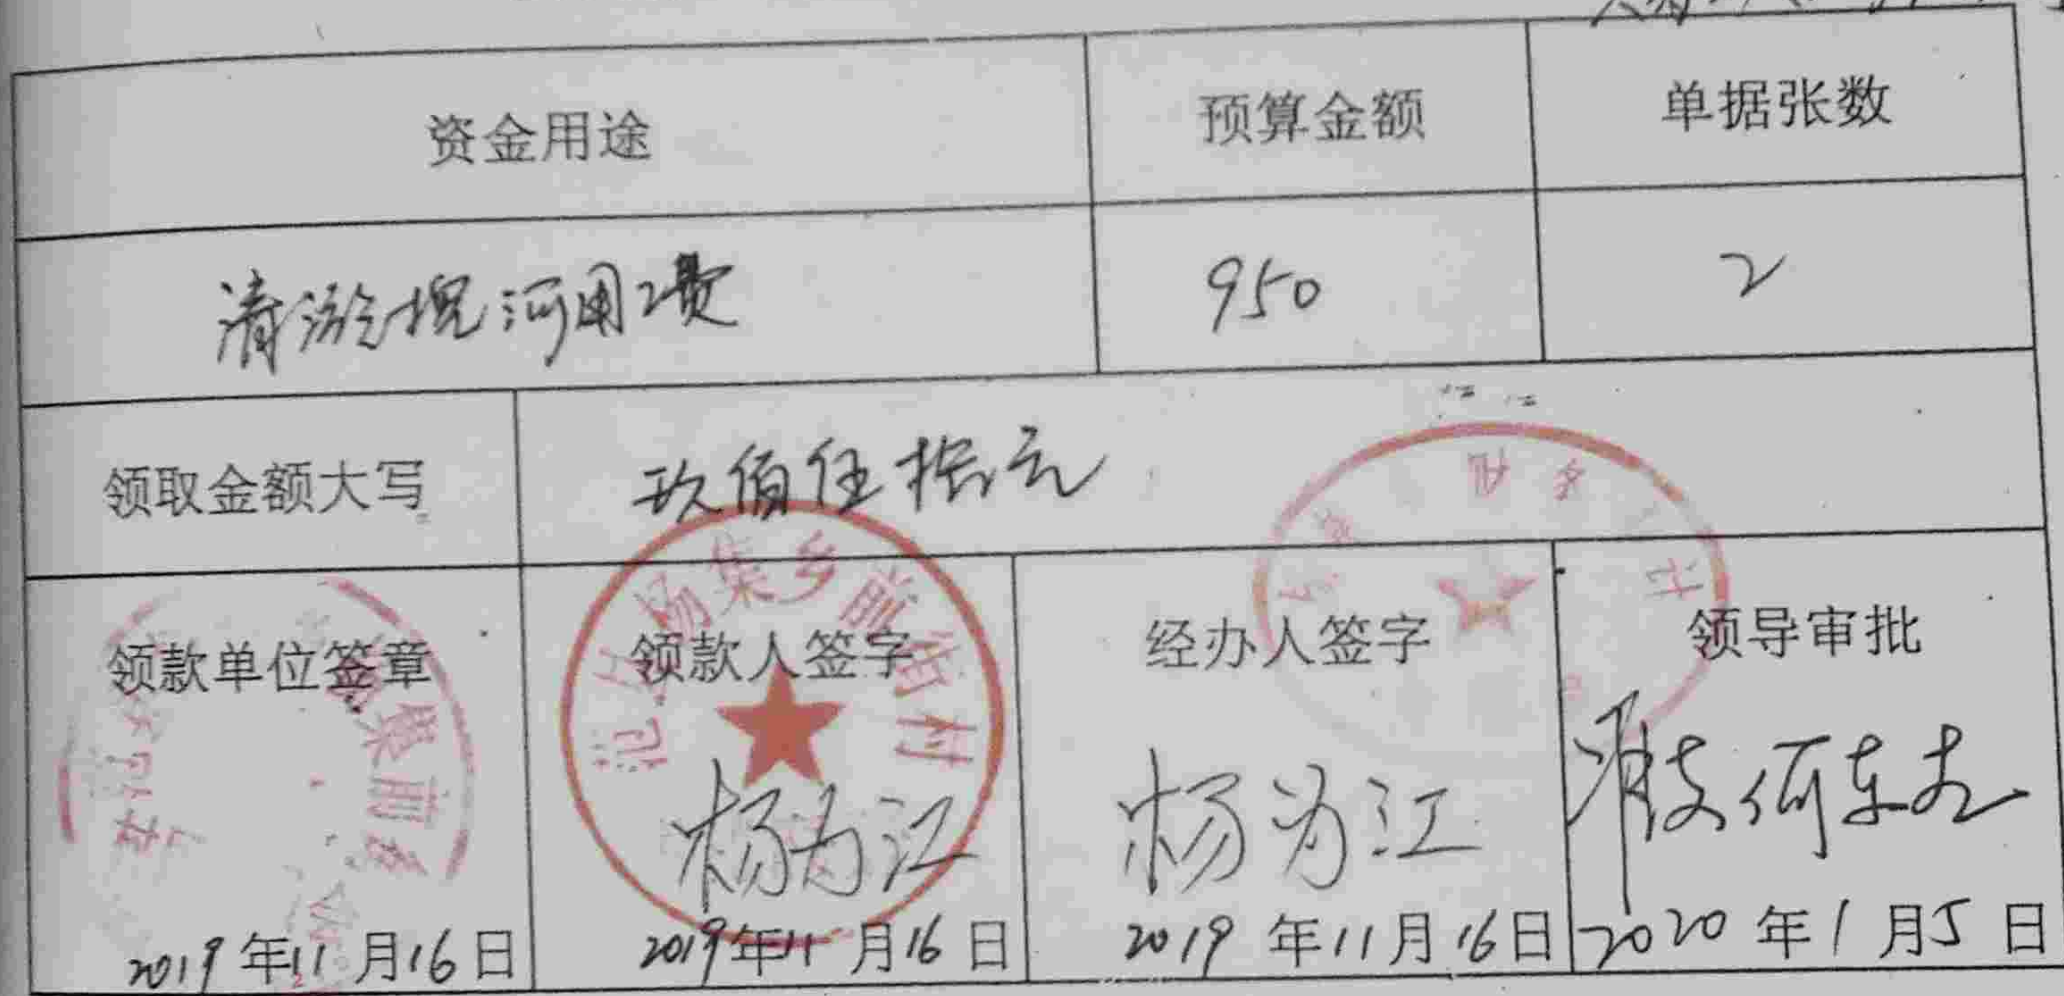 资金用途 预算金额 单据张数
清淤 河用工费 950 2
领取金额大写 玖佰伍拾元
杨集乡前 村
领款单位签章 领款人签字 经办人签字 领导审批
杨为江 杨为江
2019年11月16日 2019年11月16日 2019年11月16日 2020年1月5日